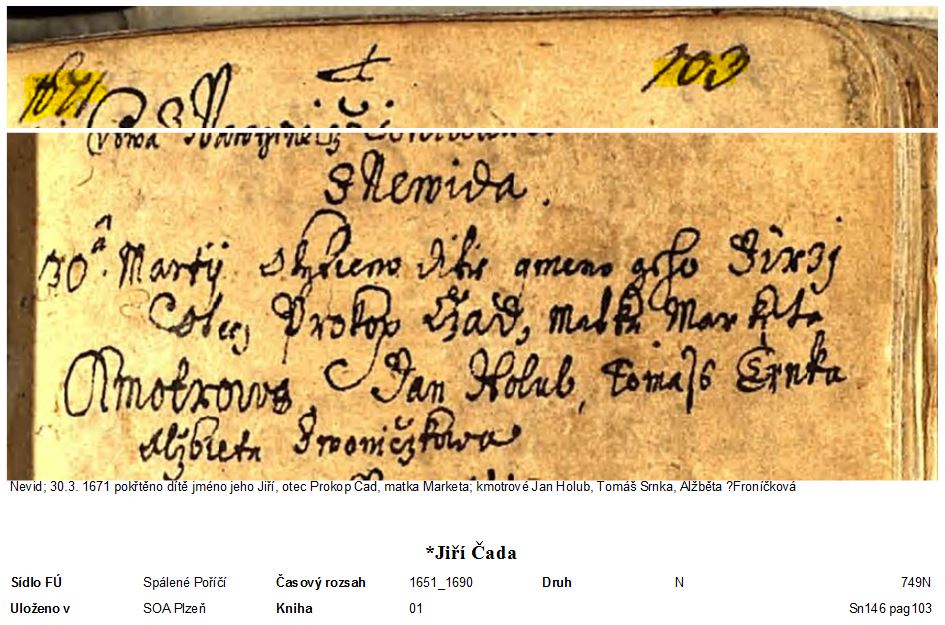 1671 103
z Newida.
30â. Martij. okrztieno ditie gmeno geho Jirzj
Otecz Prokop Czad, matka Marketa
Kmotrowe, Jan Holub, Tomass Srnka
Alzbieta
Nevid; 30.3. 1671 pokřtěno dítě jméno jeho Jiří, otec Prokop Čad, matka Marketa; kmotrové Jan Holub, Tomáš Srnka, Alžběta ?Froníčková
*Jiří Čada
Sídlo FÚ Spálené Poříčí Časový rozsah 1651_1690 Druh N 749N
Uloženo v SOA Plzeň Kniha 01 Sn146 pag103